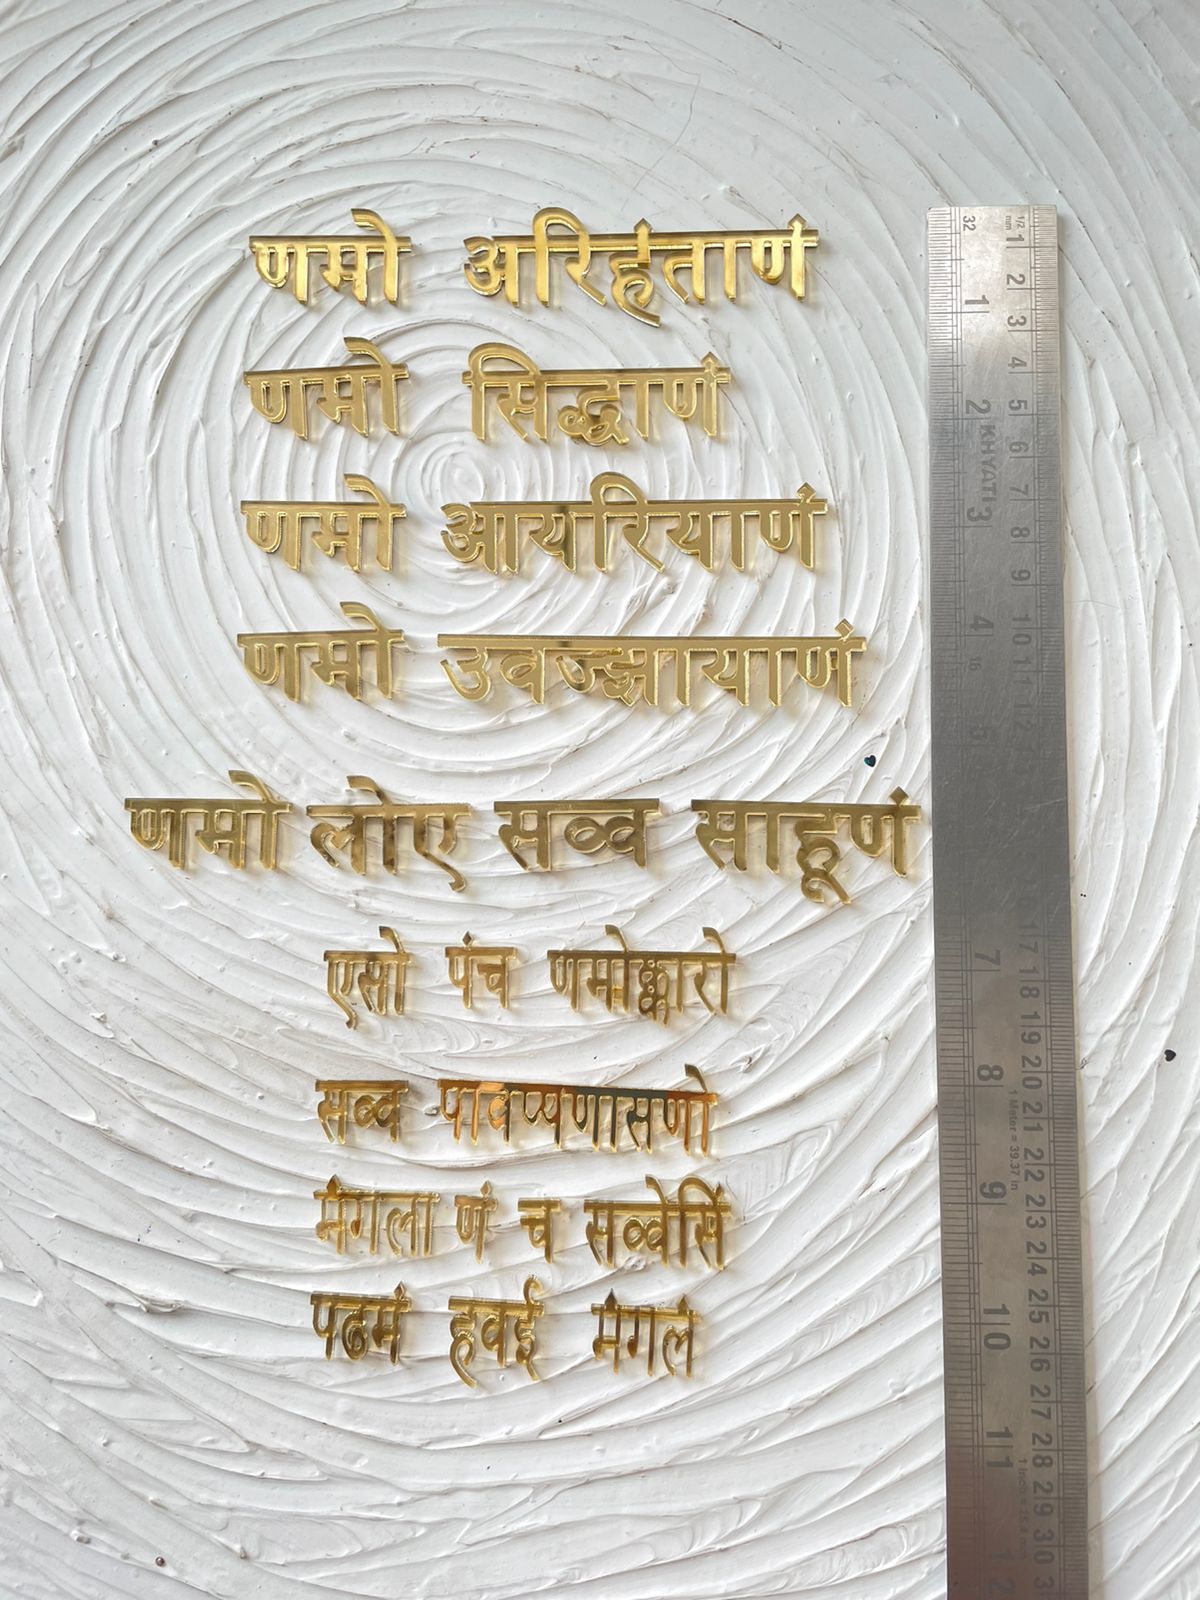 णमो अरिहंताणं
णमो सिद्धाणं
णमो आयरियाणं
णमो उवज्झायाणं
णमो लोए सव्व साहूणं
एसो पंच णमोक्कारो
सव्व पावप्पणासणो
मंगला णं च सव्वेसिं
पढमं हवई मंगलं
1/2 mm 1 2 3 4 5 6 7 8 9 10 11 12 17 18 19 20 21 22 23 24 25 26 27 28 29 30
32 1 2 KHYATI 3 4 5 7 8 9 10 11 12
1 Meter = 39.37 in